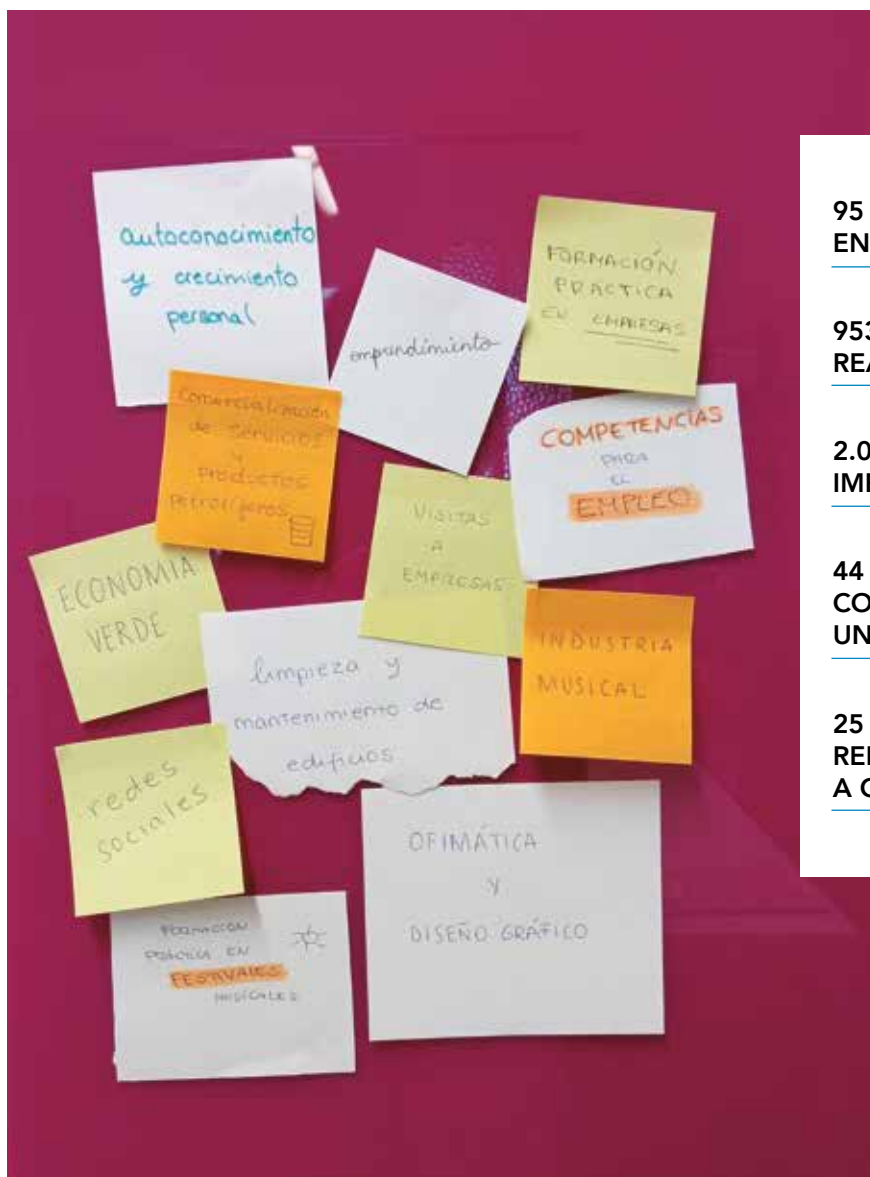 autoconocimiento
y crecimiento
personal
emprendimiento
FORMACIÓN
PRACTICA
EN EMPRESAS
comercialización
de servicios
y
productos
petrolíferos
COMPETENCIAS
PARA
EL
EMPLEO
VISITAS
A
EMPRESAS
ECONOMIA
VERDE
limpieza y
mantenimiento de
edificios
INDUSTRIA
MUSICAL
redes
sociales
OFIMÁTICA
Y
DISEÑO GRÁFICO
FORMACION
PRÁCTICA EN
FESTIVALES
MUSICALES
95
EN
953
REA
2.0
IMP
44
CO
UN
25
A C